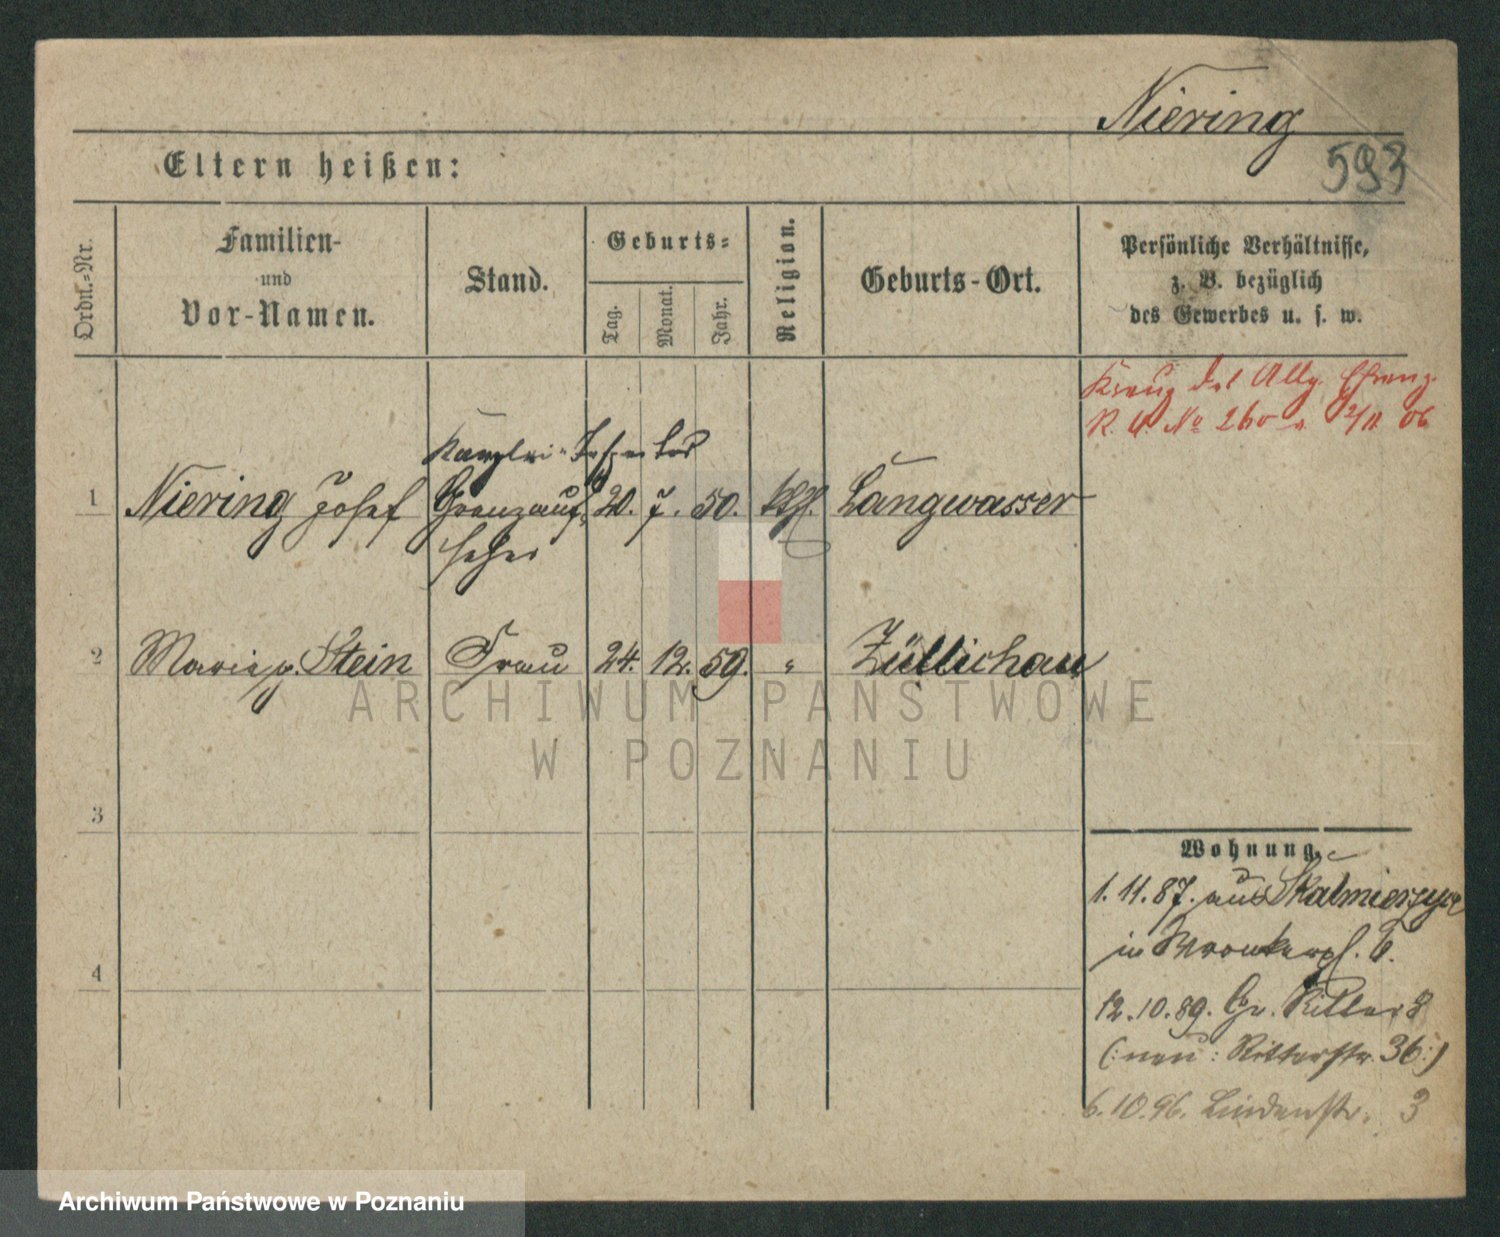 Niering
593
Eltern heißen:
Ordn.-Nr.
Familien-
und
Vor-Namen.
Stand.
Geburts-
Tag.
Monat.
Jahr.
Religion.
Geburts-Ort.
Persönliche Verhältnisse,
z. B. bezüglich
des Gewerbes u. s. w.
Kreuz des Allg. Ehrenz.
Kanzlei-Inspektor
1 Niering Josef Grenzauf- 20. 7. 50. kth. Langwasser
seher
2 Marie g. Stein Frau 24. 12. 59. " Züllichau
3
4
Wohnung.
1. 11. 87. aus Skalmierzyce
in Wronkerpl. 6.
12. 10. 89. Gr. Ritter 8
(: neu: Ritterstr. 36 :)
6. 10. 96. Lindenstr. 3
ARCHIWUM PAŃSTWOWE
W POZNANIU
Archiwum Państwowe w Poznaniu